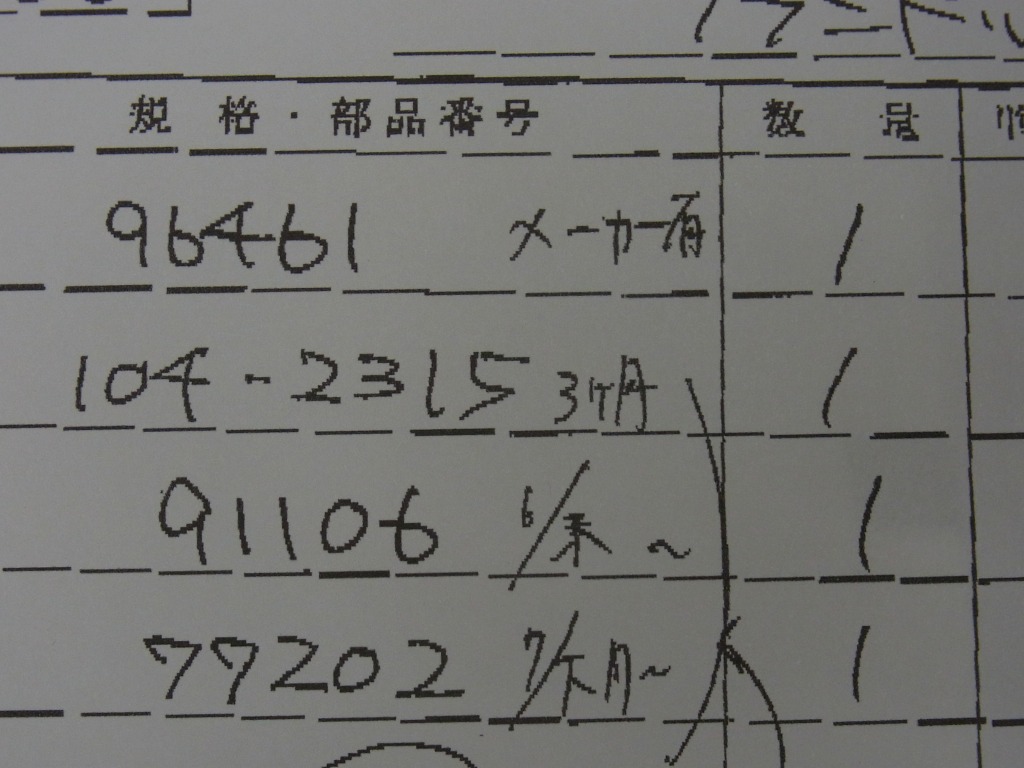 規格・部品番号 数量
96461 メーカー有 1
104-2315 3ケ月 1
91106 6/末~ 1
77202 7/下月~ 1